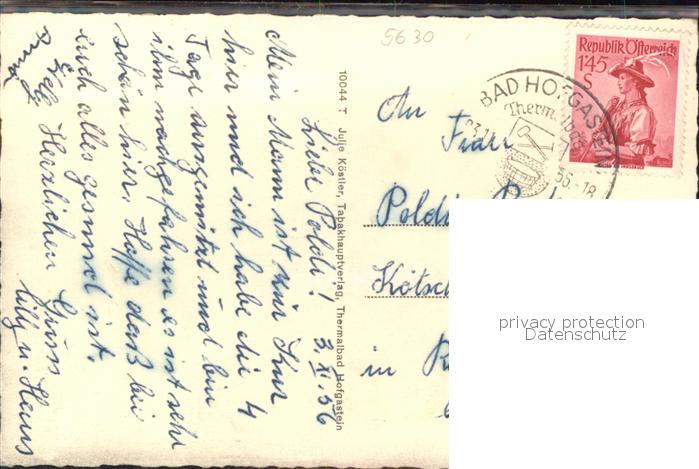 5630
Republik Österreich
1'45
S
BAD HOFGASTEIN
Thermalbad
56.-18
An
Frau
Poldi
Kötsch
in
Liebe Poldi! 3.XI.56
Mein Mann ist zur Kur
hier und ich habe die 4
Tage ausgenützt und bin
ihm nachgefahren es ist sehr
schön hier. Hoffe daß bei
euch alles gesund ist.
Herzlichen Gruss
Lilly u. Hans
10044 T Julie Köstler, Tabakhauptverlag, Thermalbad Hofgastein
privacy protection
Datenschutz